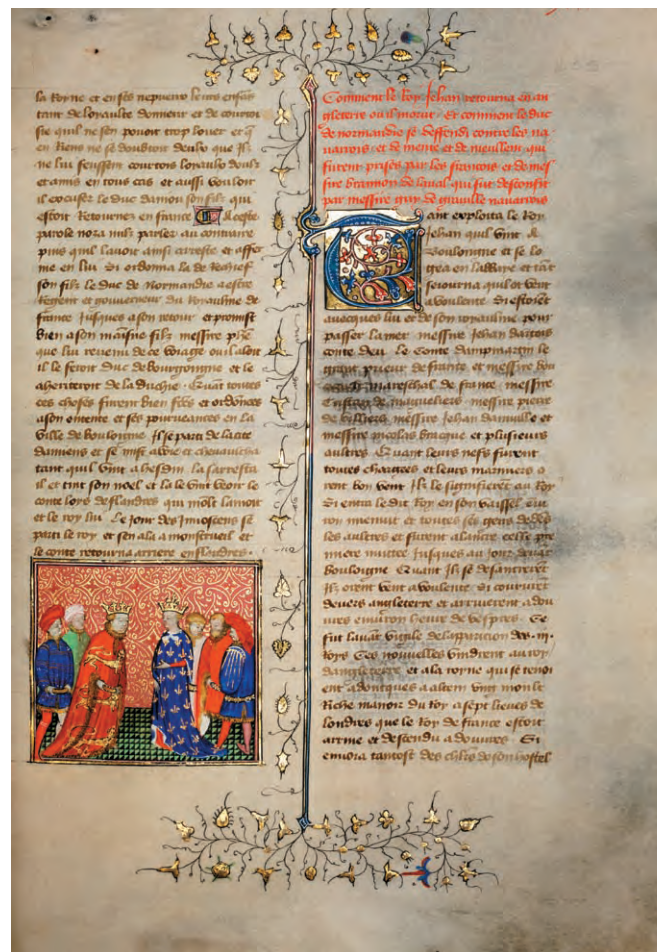 la Royne et en ses nepueux leurs enfans
tant de loyaulte donneur et de courtoi
sie quil ne sen pouoit trop louer et q̄
en Riens ne se doubtoit deulx que Ilz
ne lui feussent courtois loyaulx doulz
et amis en tous cas et aussi vouloit
il excuser le Duc daniou son filz qui
estoit Retournez en france A ceste
parole noza nulz parler au contraire
puis quil lauoit ainsi arreste et afferme
en lui Si ordonna la de Rechief
son filz le Duc de Normandie a estre
Regent et gouuerneur du Royaulme de
france Jusques a son retour et promist
bien a son maisne filz messire phē
que lui reuenu de ce voiage ou il aloit
il le feroit Duc de Bourgongne et le
aheriteroit de la duchie Quant toutes
ces choses furent bien fcēs et ordōnees
a son entente et ses pourueances en la
ville de Bouloigne Il se parti de la cite
damiens et se mist a voie et cheuaucha
tant quil vint a hesdin la sarresta
il et tint son noel et la le vint veoir le
conte loys de flandres qui mōlt lamoit
et le roy lui Le Jour des Innocens se
parti le roy et sen ala a monstrueil et
le conte retourna arriere en flandres
Comment le Roy Jehan retourna en an
gleterre ou il morut / et comment le duc
de normandie se deffendi contre les na
uarrois et de mante et de meullent qui
furent prises par les francois et de mes
sire braimon de laual qui fut desconfit
par messire guy de grauille nauarrois
Tant exploita le Roy
Jehan quil vint a
Boulongne et se lo
gea en labbaie et tāt
seiourna quil ot vent
a voulente Si estoiēt
auecques lui et de son royaulme pour
passer la mer messire Jehan dartois
conte deu Le Conte dampmartin le
grant prieur de france et messire bou
mareschal de france messire
messire pierre
de villiers messire Jehan danuille et
messire nicolas bracque et plusieurs
aultres Quant leurs nefs furent
toutes chargees et leurs mariniers o
rent bon vent Ilz le signifierent au Roy
Si entra le dit Roy en son vaissel enui
ron mienuit et toutes ses gens dedēs
les aultres et furent a lancre celle pre
miere nuittee Jusques au Jour deuāt
Boulongne Quant Ilz se desancrerēt
Ilz orent vent a voulente Si coururēt
deuers angleterre et arriuerent a dou
ures enuiron heure de vespres Ce
fut lauāt vigile de lapparicion des .iij.
Roys Ces nouuelles vindrent au roy
dangleterre et a la royne qui se tenoi
ent adontques a altem vng moult
Riche manoir du Roy a sept lieues de
londres que le Roy de france estoit
arriue et descendu a douures Si
enuoia tantost des chlrs̄ de son hostel